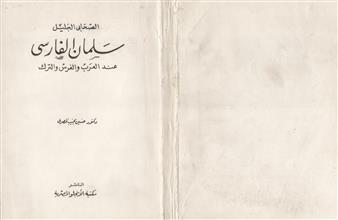 الصحابى الجليل
سلمان الفارسى
عند العرب والفرس والترك
دكتور حسين مجيب المصرى
الناشر
مكتبة الأنجلو المصرية